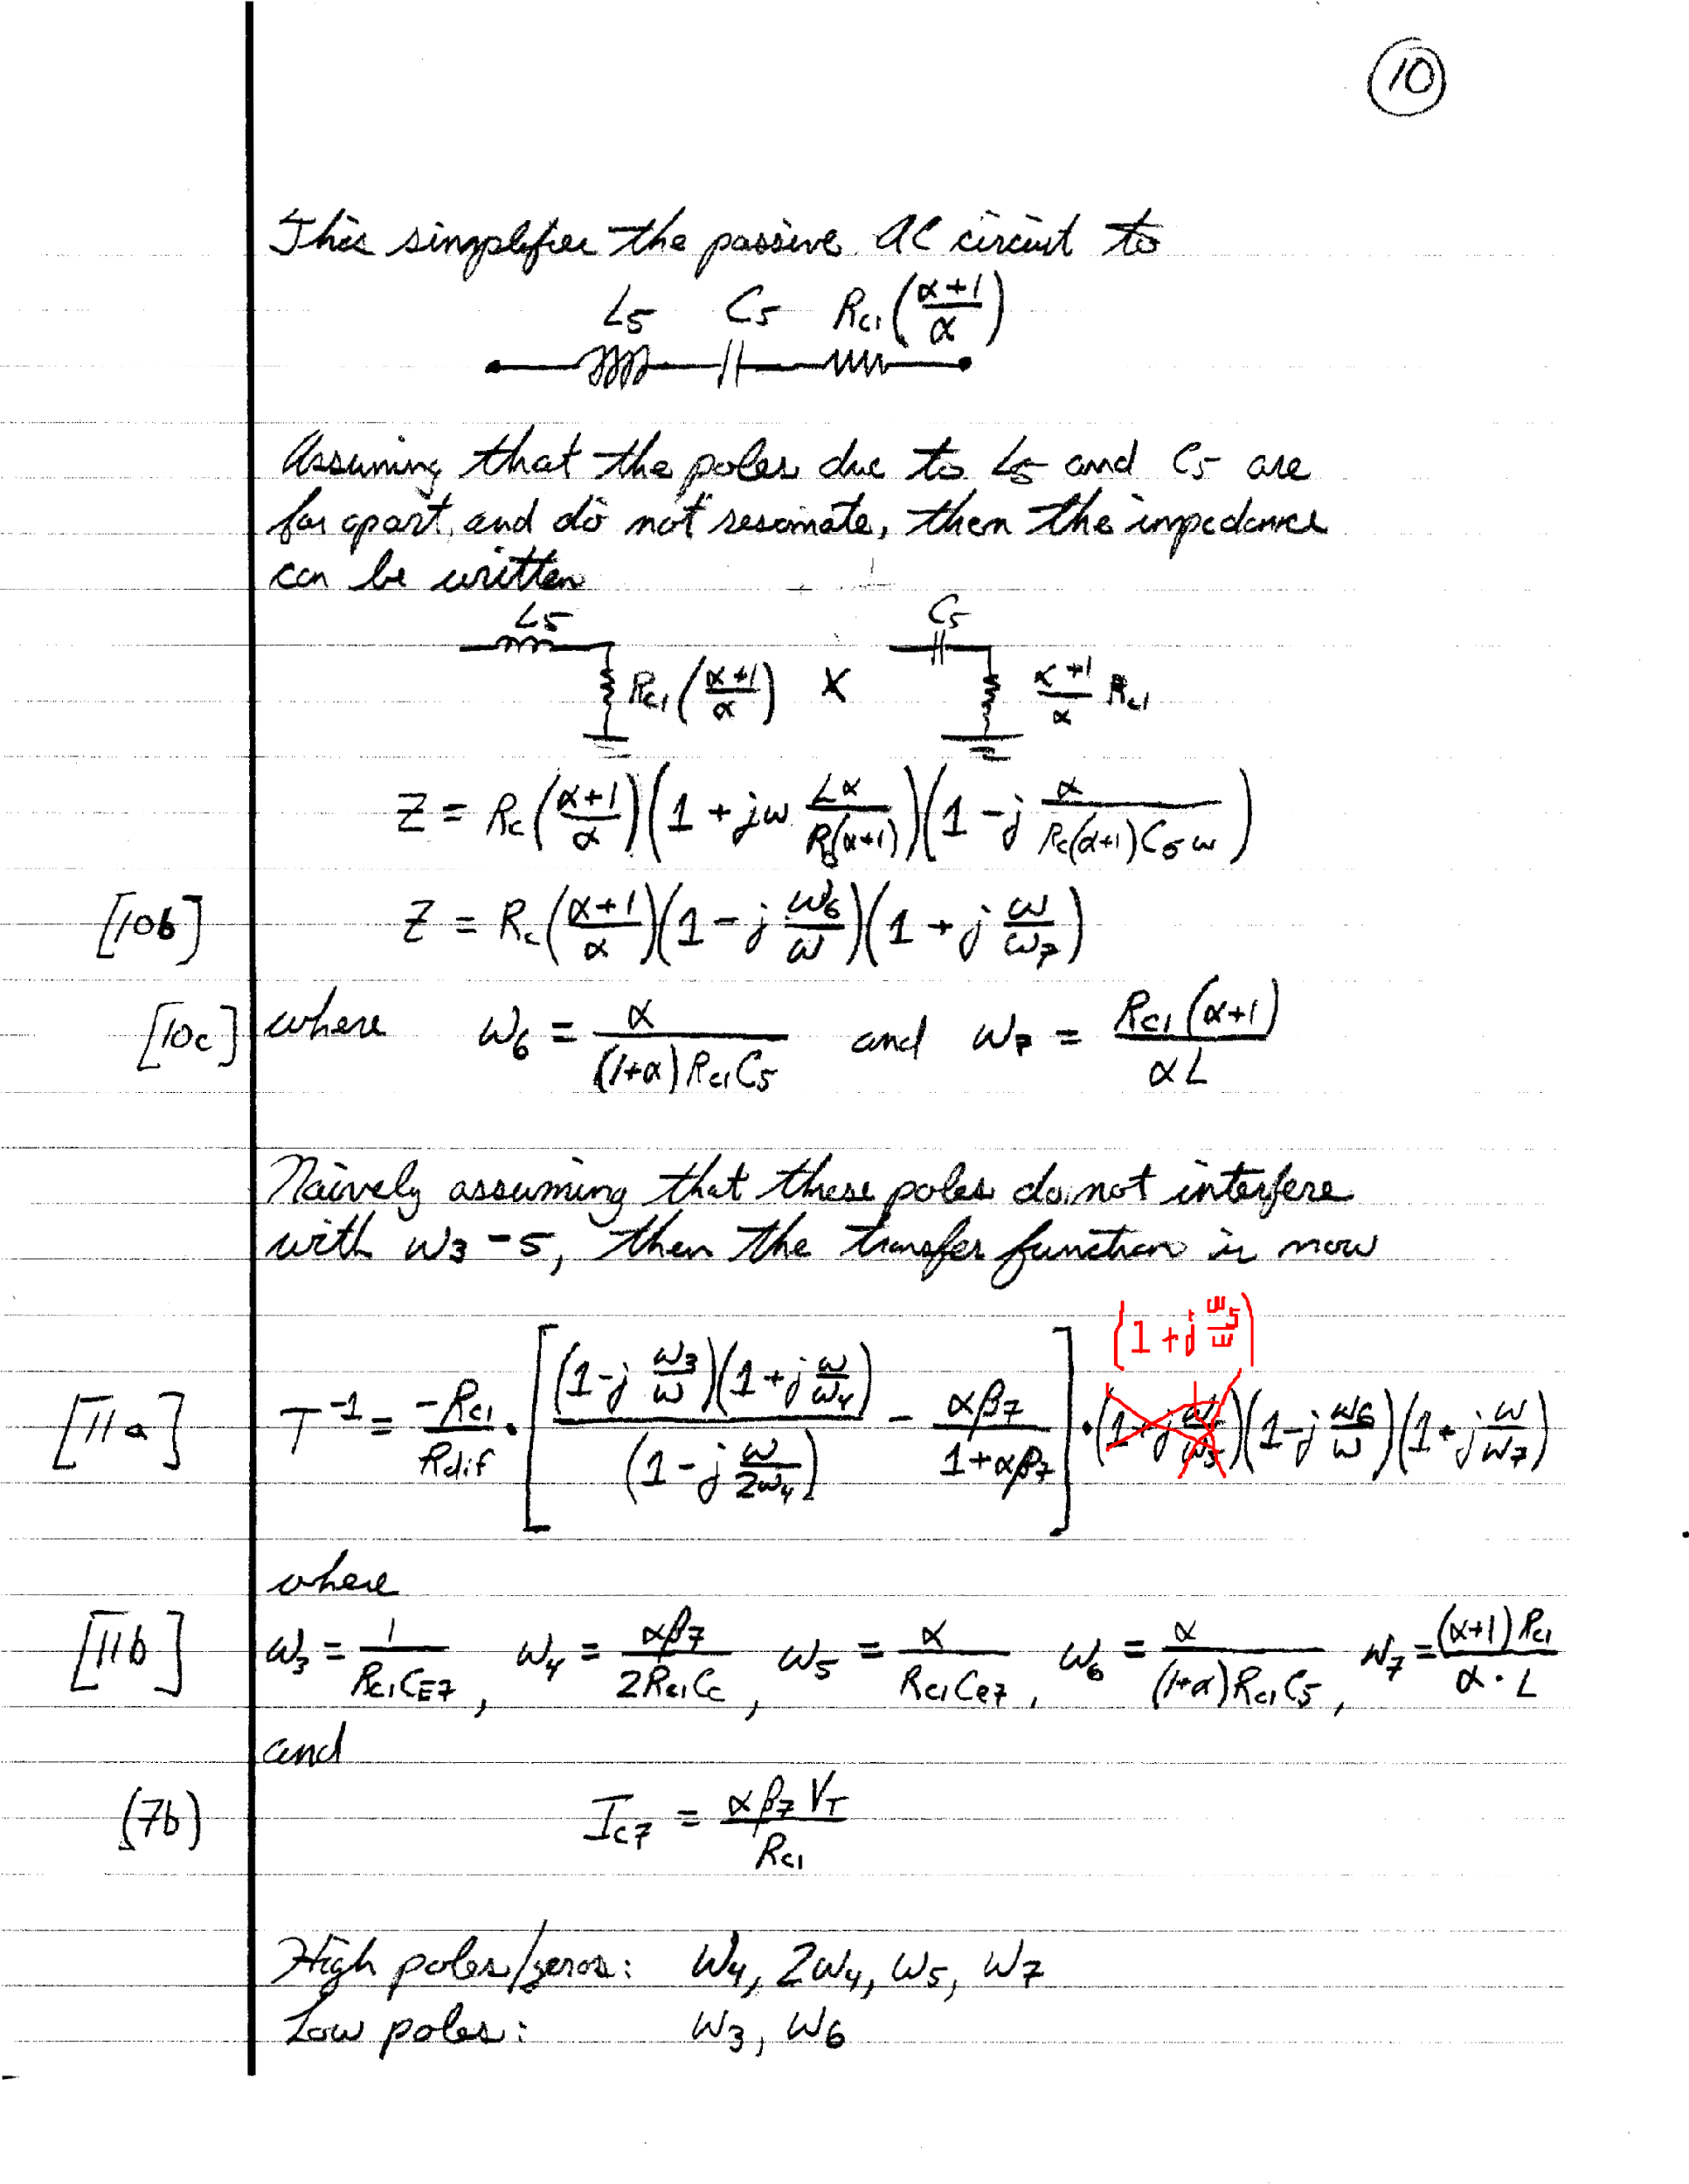 10
This simplifies the passive AC circuit to
L5 C5 Rc1 (α+1 / α)
Assuming that the poles due to L5 and C5 are
far apart, and do not resonate, then the impedance
can be written
L5 C5
Rc1 (α+1 / α) X α+1 / α Rc1
Z = Rc (α+1 / α)(1 + jω Lα / Rc(α+1))(1 - j α / Rc(α+1)C5 ω)
[10b] Z = Rc (α+1 / α)(1 - j ω6 / ω)(1 + j ω / ω7)
[10c] where ω6 = α / (1+α) Rc1 C5 and ω7 = Rc1 (α+1) / α L
Naively assuming that these poles do not interfere
with ω3-5, then the transfer function is now
(1 + j ω5 / ω)
[11a] T^-1 = -Rc1 / Rdif · [(1 - j ω3 / ω)(1 + j ω / ω4) / (1 - j ω / 2ω4) - αβ7 / 1+αβ7] · (1 + j ω / ω5)(1 - j ω6 / ω)(1 + j ω / ω7)
where
[11b] ω3 = 1 / Rc1 CE7 , ω4 = αβ7 / 2Rc1 Cc , ω5 = α / Rc1 Ce7 , ω6 = α / (1+α) Rc1 C5 , ω7 = (α+1) Rc1 / α · L
and
(7b) Ic7 = αβ7 VT / Rc1
High poles/zeros: ω4, 2ω4, ω5, ω7
Low poles: ω3, ω6